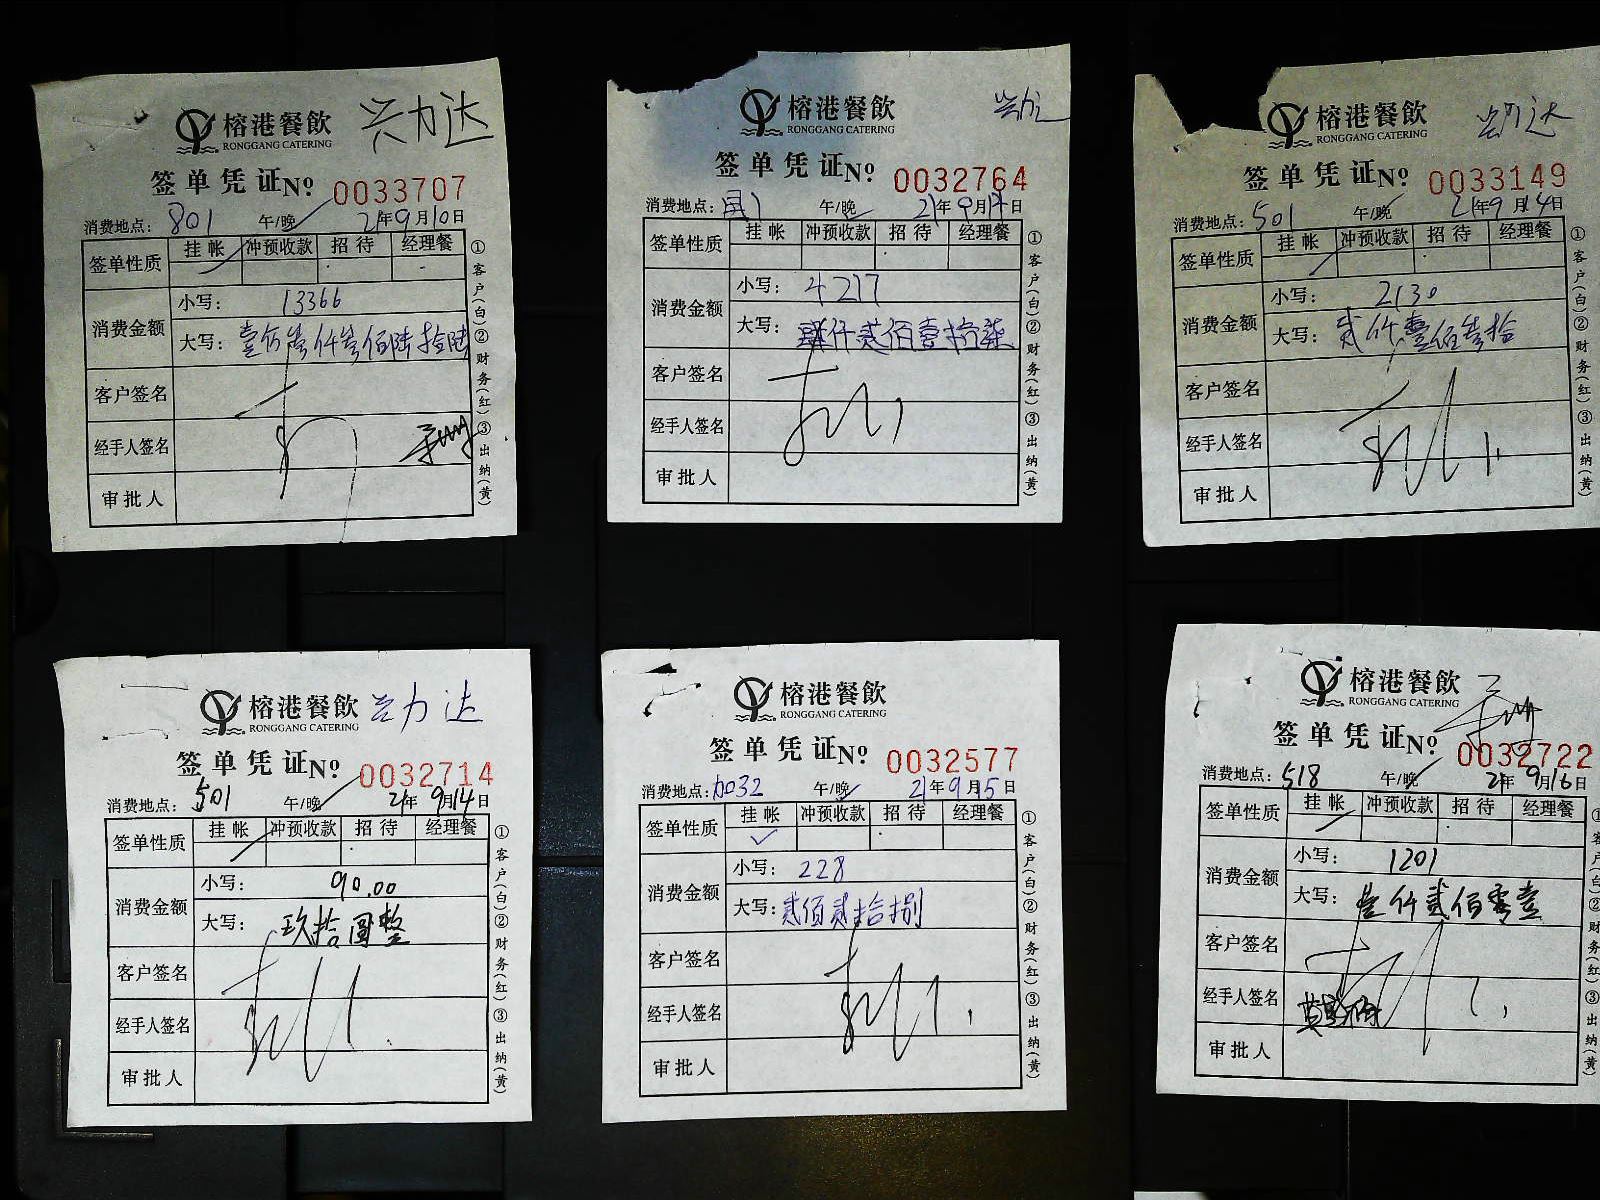 榕港餐飲 兴力达
RONGGANG CATERING
签单凭证 No 0033707
消费地点: 801 午/晚 21年9月10日
签单性质 挂帐 冲预收款 招待 经理餐
消费金额 小写: 13366
大写: 壹万叁仟叁佰陆拾陆
客户签名
经手人签名
审批人
①客户(白)②财务(红)③出纳(黄)
榕港餐飲
RONGGANG CATERING
签单凭证 No 0032764
消费地点: 午/晚 21年9月 日
签单性质 挂帐 冲预收款 招待 经理餐
消费金额 小写: 4217
大写: 肆仟贰佰壹拾柒
客户签名
经手人签名
审批人
①客户(白)②财务(红)③出纳(黄)
榕港餐飲 兴力达
RONGGANG CATERING
签单凭证 No 0033149
消费地点: 501 午/晚 21年9月14日
签单性质 挂帐 冲预收款 招待 经理餐
消费金额 小写: 2130
大写: 贰仟壹佰叁拾
客户签名
经手人签名
审批人
①客户(白)②财务(红)③出纳(黄)
榕港餐飲 兴力达
RONGGANG CATERING
签单凭证 No 0032714
消费地点: 501 午/晚 21年9月14日
签单性质 挂帐 冲预收款 招待 经理餐
消费金额 小写: 90.00
大写: 玖拾圆整
客户签名
经手人签名
审批人
①客户(白)②财务(红)③出纳(黄)
榕港餐飲
RONGGANG CATERING
签单凭证 No 0032577
消费地点: 午/晚 21年9月15日
签单性质 挂帐 冲预收款 招待 经理餐
消费金额 小写: 228
大写: 贰佰贰拾捌
客户签名
经手人签名
审批人
①客户(白)②财务(红)③出纳(黄)
榕港餐飲
RONGGANG CATERING
签单凭证 No 0032722
消费地点: 518 午/晚 21年9月16日
签单性质 挂帐 冲预收款 招待 经理餐
消费金额 小写: 1201
大写: 壹仟贰佰零壹
客户签名
经手人签名
审批人
①客户(白)②财务(红)③出纳(黄)